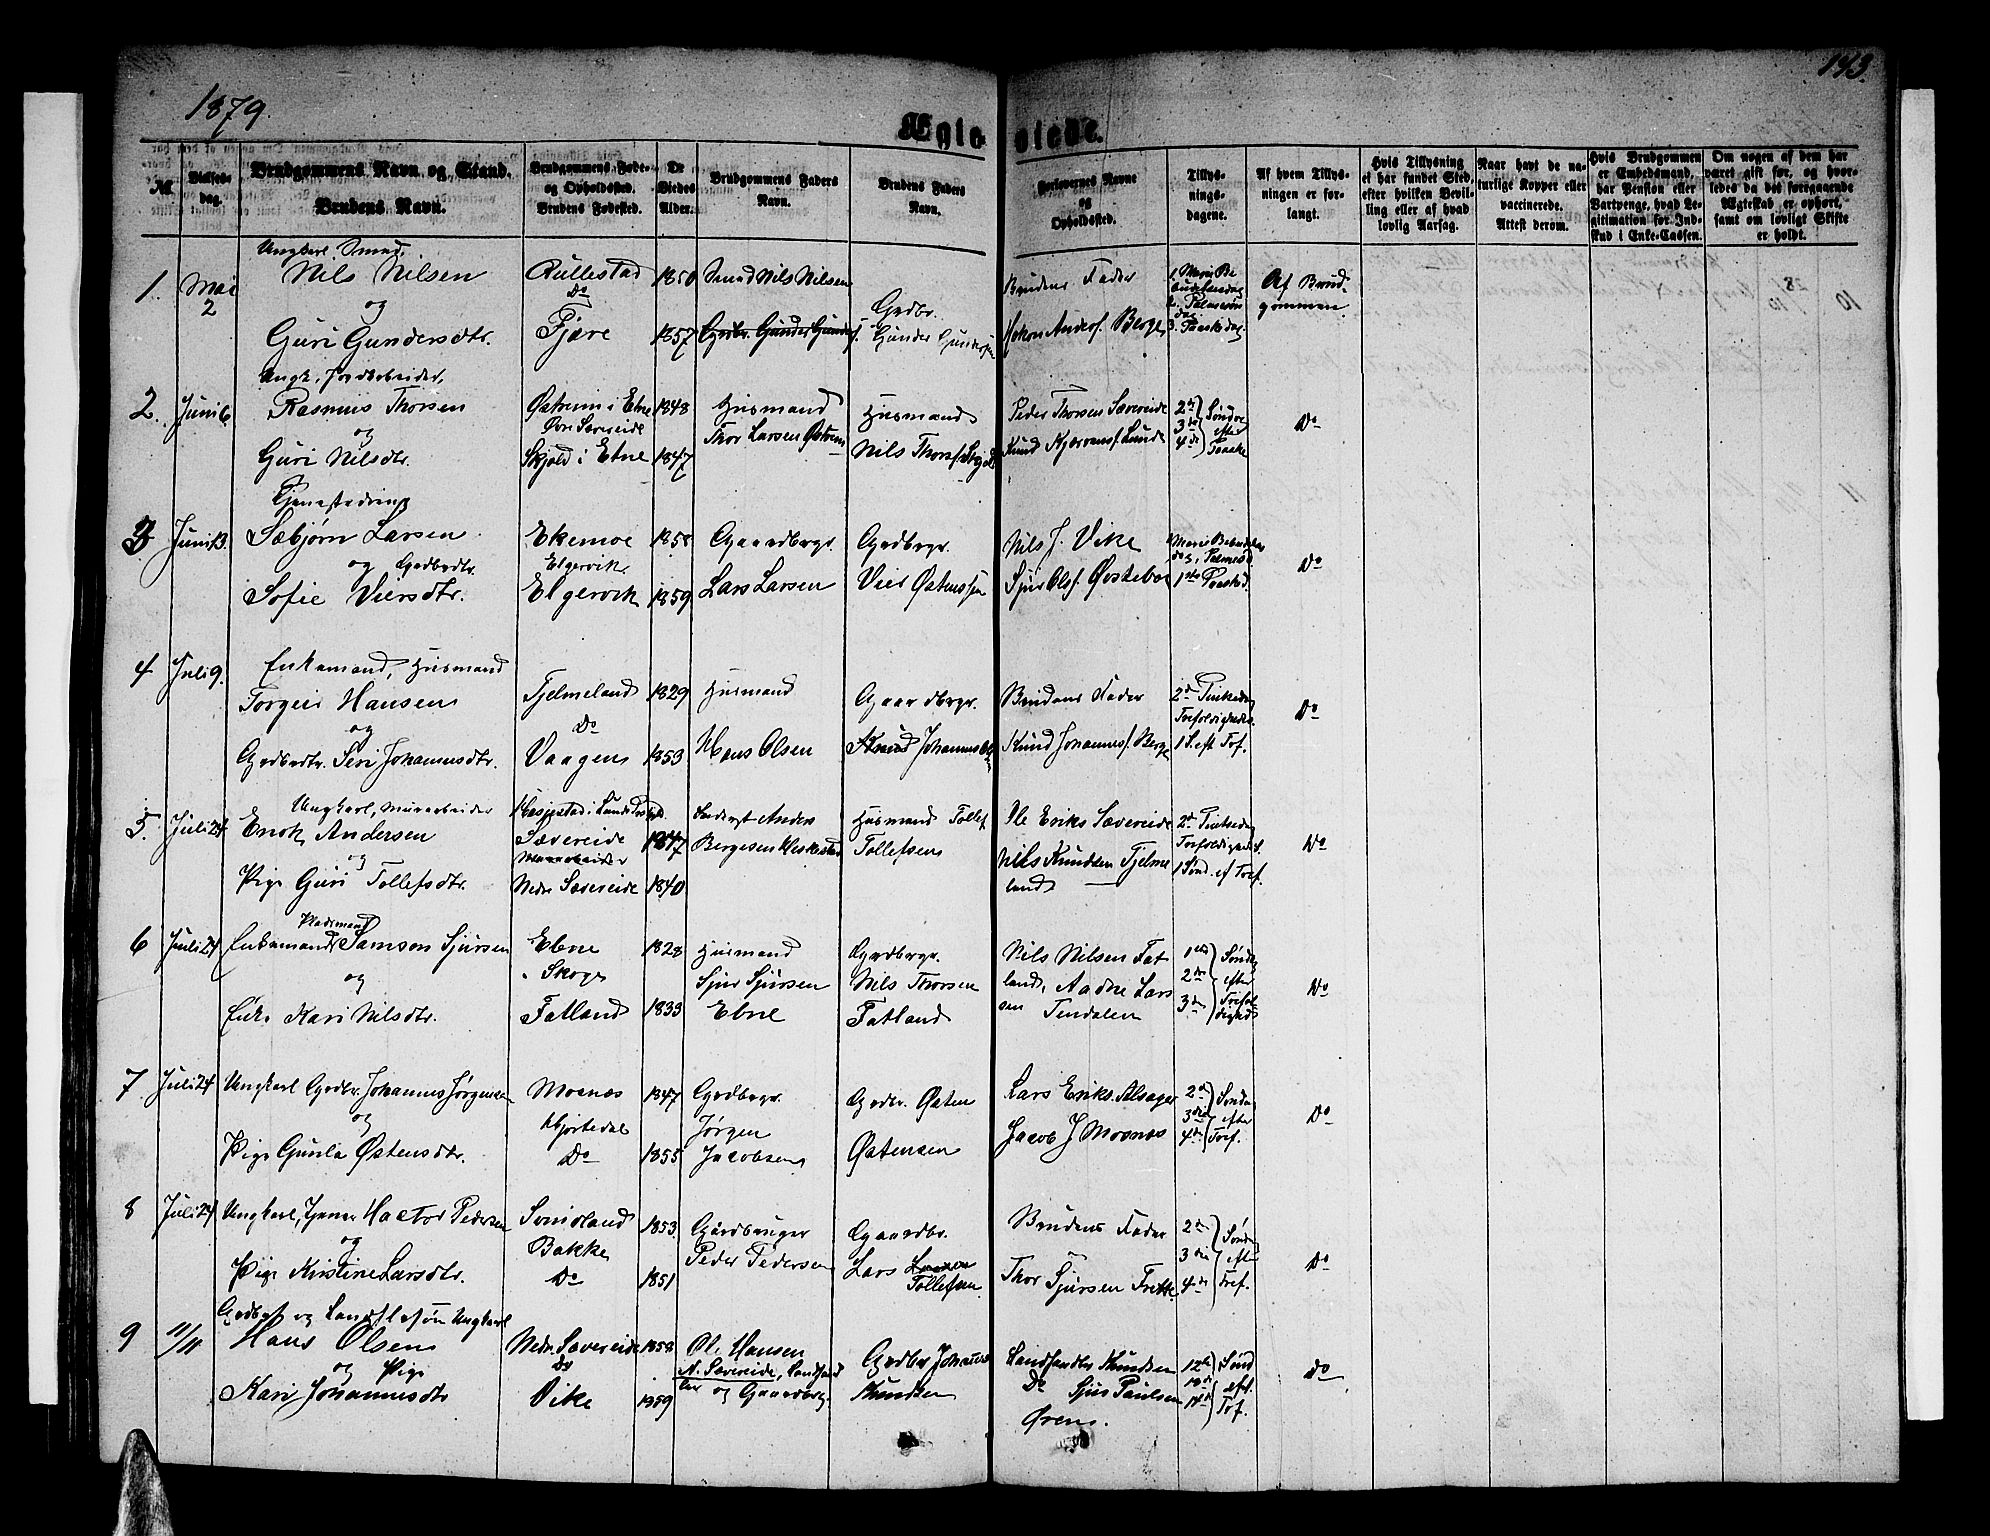 1879.
143.
Ægteviede.
№
Vielses-
dag.
Brudgommens Navn og Stand.
Brudens Navn.
Brudgommens Føde-
og Opholdssted.
Brudens Fødested.
De
Viedes
Alder.
Brudgommens Faders
Navn.
Brudens Faders
Navn.
Forlovernes Navne
og
Opholdssted.
Tillys-
nings-
dagene.
Af hvem Tillys-
ningen er for-
langt.
Hvis Tillysning
ei har fundet Sted,
efter hvilken Bevil-
ling eller af hvad
lovlig Aarsag.
Naar havt de na-
turlige Kopper eller
vaccinerede.
Attest derom.
Hvis Brudgommen
er Embedsmand,
har Pension eller
Vartpenge, hvad Le-
gitimation for Ind-
skud i Enke-Cassen.
Om nogen af dem har
været gift før, og hvor-
ledes da det foregaaende
Ægteskab er ophørt,
samt om lovligt Skifte
er holdt.
1. Mai 2
Ungkarl Smed,
Nils Nilsen
og
Guri Gundersdtr.
Rullestad
Do
Fjære
1850
1857
Smed Nils Nilsen
Grdbr. Gunder Gunders.
Grdbr.
Gunder Gundersen
Brudens Fader
Hokon Anders. Berge
1. Marie Be
budelsesdag
2. Palmesøn
dag
3. Paaskedag
Af Brud-
gommen.
2. Juni 6.
Ungk. Jordarbeider,
Rasmus Thorsen
og
Guri Nilsdtr.
Østrem i Etne
Øvre Sævereide
Skjold i Etne
1848
1847
Husmand
Thor Larsen Østrem
Husmand
Nils Thors.
Peder Thorsen Sævereide
Knud Lund
2de
3de
4de
Søndag
efter
Paaske
Do
3 Juni 13.
Tjenestedreng
Sæbjørn Larsen
og Grdbrdtr.
Sofie Viersdtr.
Ekemoe
Elgervik
Elgervik
1858
1859
Gaardbrgr.
Lars Larsen
Grdbrgr.
Vier Østenssen
Nils J. Vike
Sjur Ols. Østebø
Marie Bebudelses
dag, Palmesd.
1ste Paasked.
Do
4 Juli 9.
Enkemand, Husmand
Torgeir Hansen
og
Grdbrdtr. Siri Johannesdtr.
Tjelmeland
Do
Vaagen
1829
1853
Husmand
Hans Olsen
Gaardbrgr.
Knud Johannes
Brudens Fader
Knud Johannes. Berge
2d Pintsedag
Trefoldigheds.
1 S. eft Tref.
Do
5. Juli 24
Ungkarl, Murarbeider
Enok Andersen
og
Pige Guri Tollefsdtr.
Sævereide
Murarbeider
Nedr. Sævereide
1847
1840
Anders
Bergesen Heskestad
Husmand Tollef
Tollefsen
Ole Eriks. Sævereide
Nils Knudsen Tjelme
land
2d Pintsedag
Trefoldigheds.
1 Sønd. ef Tref.
Do
6 Juli 24
Pladsmand
Enkemand Samson Sjursen
og
Enke Kari Nilsdtr.
Ebne
Skoge
Fatland
1828
1833
Husmand
Sjur Sjursen
Ebne
Grdbrgr.
Nils Thorsen
Fatland
Nils Nilsen Fat
land, Aadne Lars
sen Tendalen
1ste
2den
3de
Søndag
efter
Trefol
digheds
Do
7 Juli 24
Ungkarl Grdbr. Johannes Jørgensen
og
Pige Gunla Østensdtr.
Mosnæs
Hjortedal
Do
1847
1855
Grdbrgr.
Jørgen
Jacobsen
Grdbr. Østen
Østensen
Lars Eriks. Alsager
Jacob J Mosnæs
2d
3die
4de
Søndag
efter
Tref.
Do
8 Juli 24
Ungkarl, Tjener Hactor Pedersen
og
Pige Kristine Larsdtr.
Bakke
Do
1853
1851
Gårdbruger
Peder Pedersen
Gaardbr.
Lars Larsen
Tollefsen
Brudens Fader
Thor Sjursen Frette
2de
3die
4de
Sønda
efter
Tref.
Do
9 11/11
Ungkarl
Hans Olsen
og Pige
Kari Johannesdtr
Nedr. Sævereide
Do
Vike
1858
1859
Ole Hansen
N. Sævereide, Landhand
ler og Gaardbrg.
Grdbr Johannes
Knudsen
Landhandler Knudsen
Do Sjur Paulsen
Ørens.
12te
13de
14de
Sønd
eft.
Tref.
Do